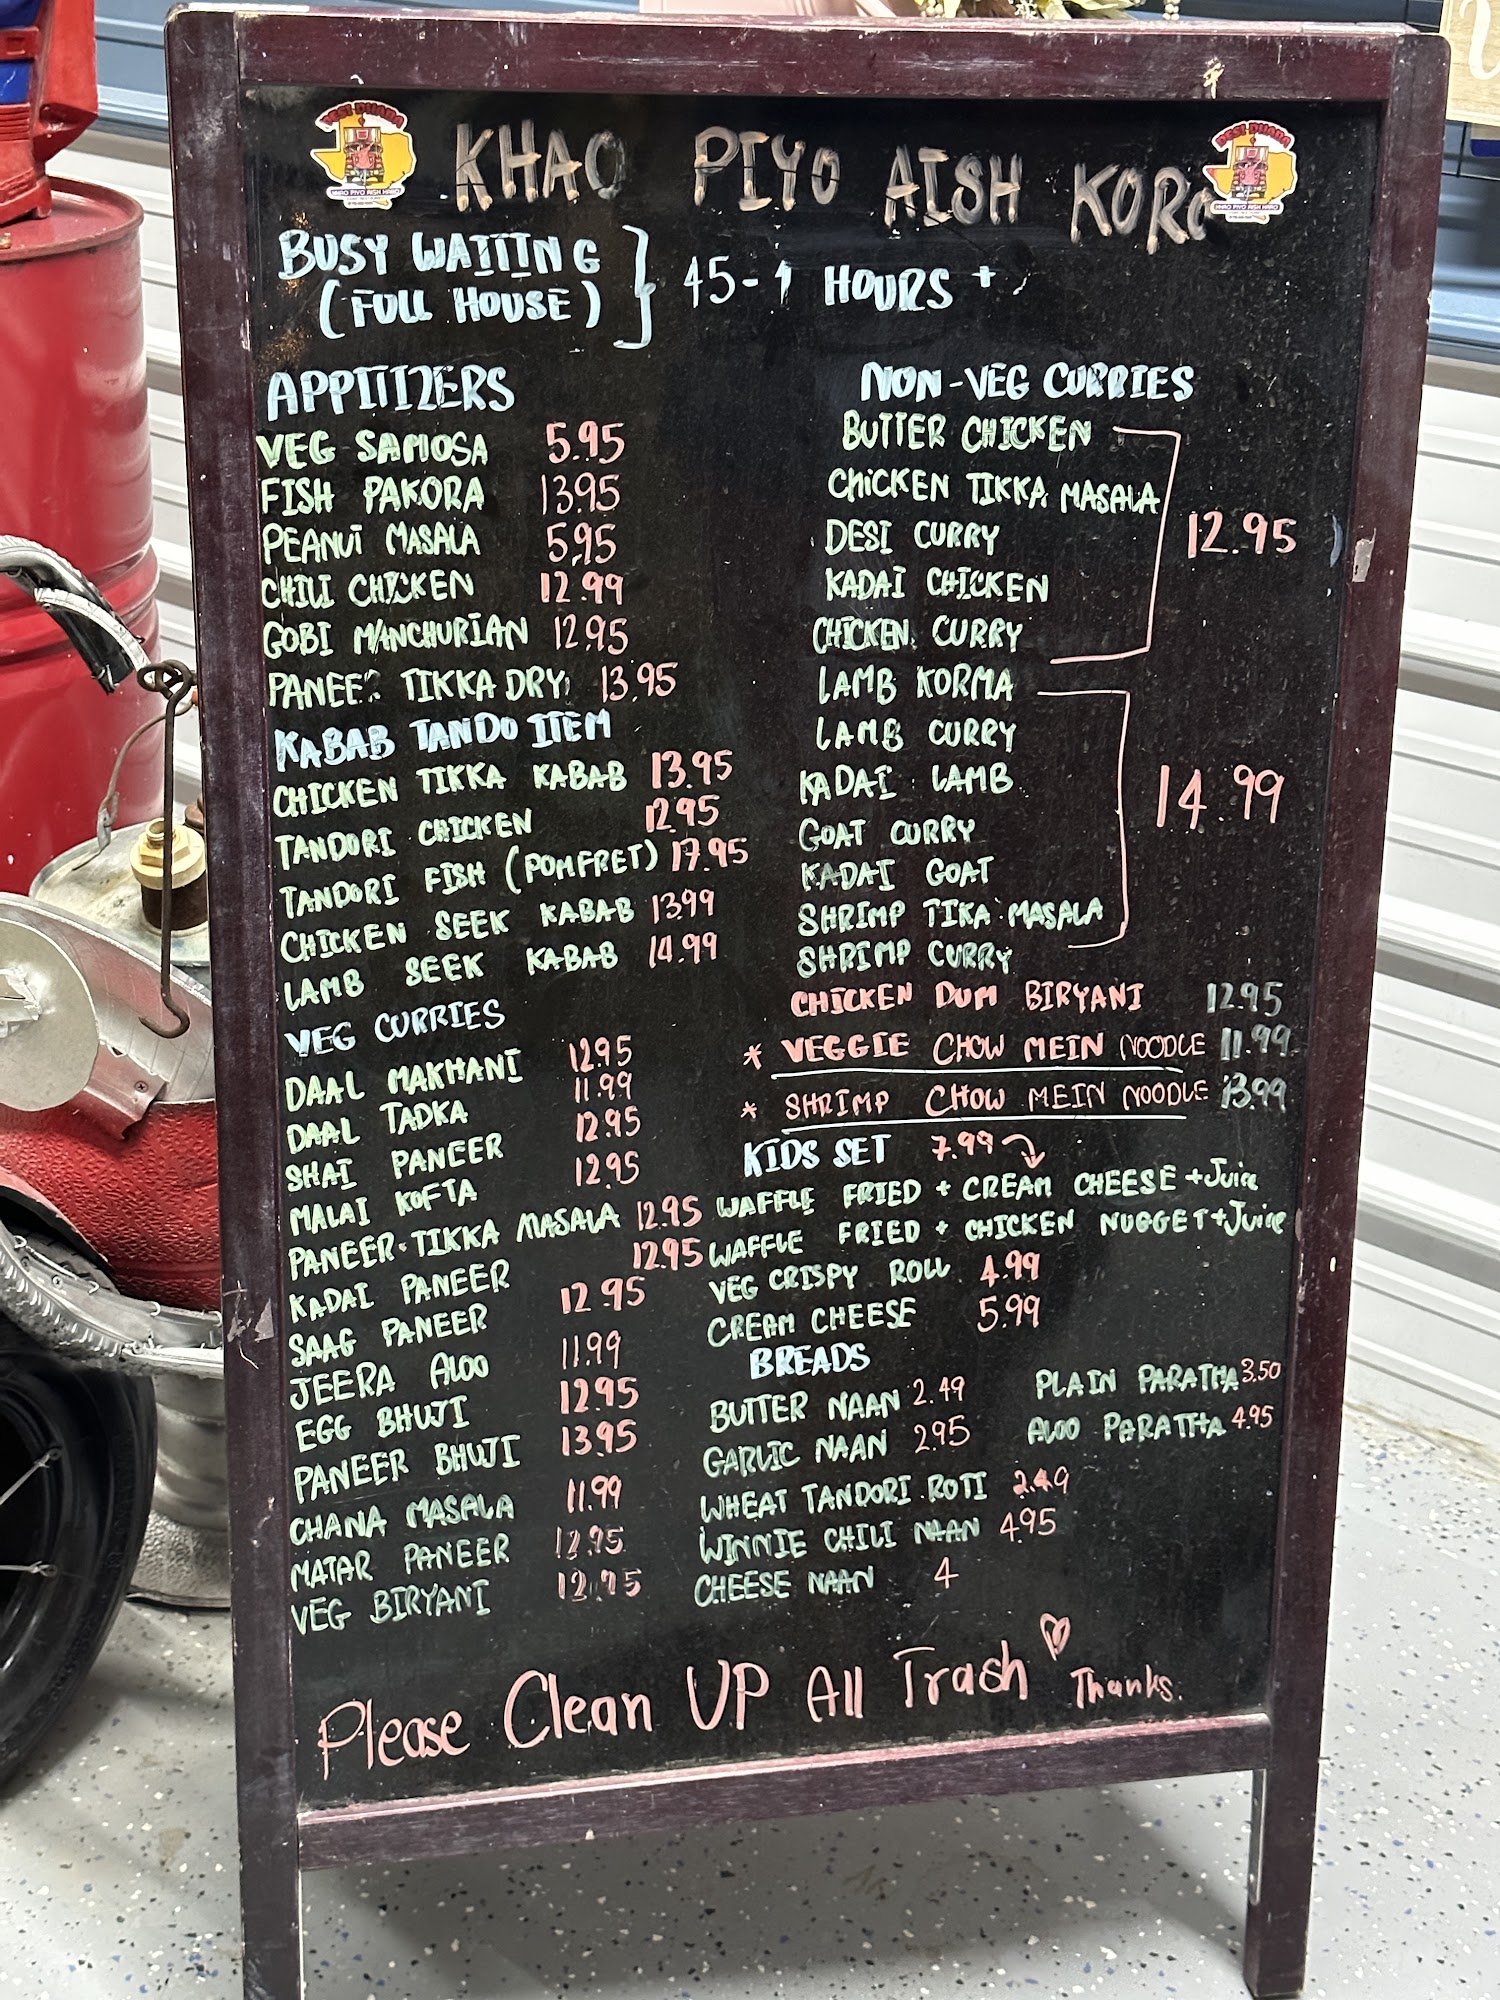 DESI DHABA
KHAO PIYO AISH KARO
KHAO PIYO AISH KORO
DESI DHABA
KHAO PIYO AISH KARO
BUSY WAITING
(FULL HOUSE)
45-1 HOURS +
APPITIZERS
VEG SAMOSA 5.95
FISH PAKORA 13.95
PEANUT MASALA 5.95
CHILI CHICKEN 12.99
GOBI MANCHURIAN 12.95
PANEER TIKKA DRY 13.95
KABAB TANDO ITEM
CHICKEN TIKKA KABAB 13.95
TANDORI CHICKEN 12.95
TANDORI FISH (POMFRET) 17.95
CHICKEN SEEK KABAB 13.99
LAMB SEEK KABAB 14.99
VEG CURRIES
DAAL MAKHANI 12.95
DAAL TADKA 11.99
SHAI PANEER 12.95
MALAI KOFTA 12.95
PANEER TIKKA MASALA 12.95
KADAI PANEER 12.95
SAAG PANEER 12.95
JEERA ALOO 11.99
EGG BHUJI 12.95
PANEER BHUJI 13.95
CHANA MASALA 11.99
MATAR PANEER 12.95
VEG BIRYANI 12.95
NON-VEG CURRIES
BUTTER CHICKEN
CHICKEN TIKKA MASALA
DESI CURRY
KADAI CHICKEN
CHICKEN CURRY
12.95
LAMB KORMA
LAMB CURRY
KADAI LAMB
GOAT CURRY
KADAI GOAT
SHRIMP TIKA MASALA
SHRIMP CURRY
14.99
CHICKEN DUM BIRYANI 12.95
* VEGGIE CHOW MEIN NOODLE 11.99
* SHRIMP CHOW MEIN NOODLE 13.99
KIDS SET 7.99
WAFFLE FRIED + CREAM CHEESE + Juice
WAFFLE FRIED + CHICKEN NUGGET + Juice
VEG CRISPY ROLL 4.99
CREAM CHEESE 5.99
BREADS
BUTTER NAAN 2.49
GARLIC NAAN 2.95
WHEAT TANDORI ROTI 2.49
WINNIE CHILI NAAN 4.95
CHEESE NAAN 4
PLAIN PARATHA 3.50
ALOO PARATHA 4.95
Please Clean UP All Trash
Thanks.